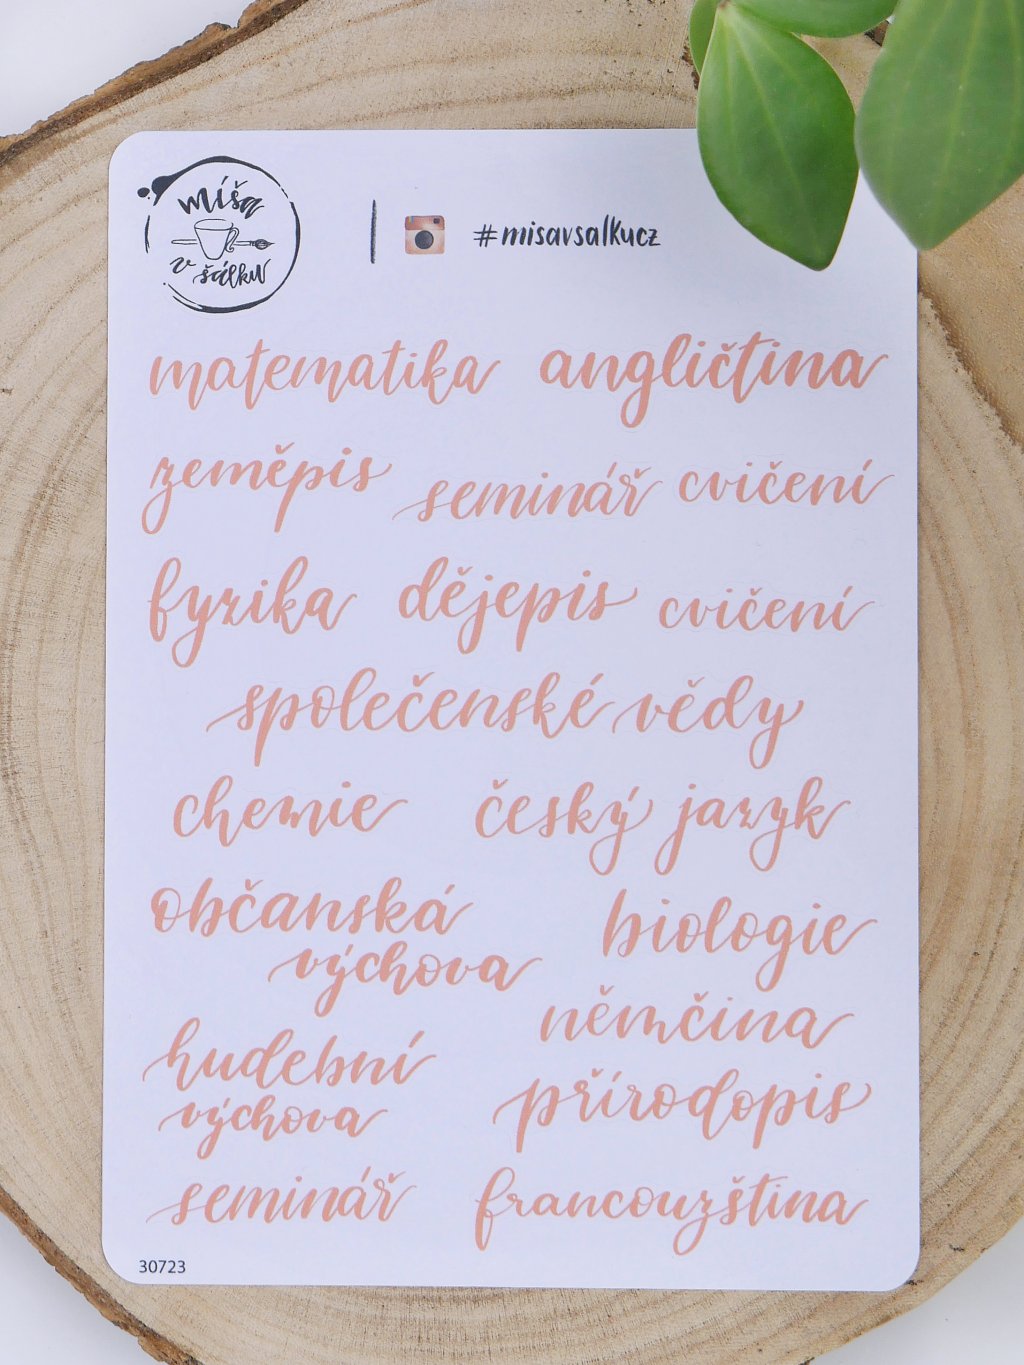 míša
v šálku
#misavsalkucz
matematika angličtina
zeměpis seminář cvičení
fyzika dějepis cvičení
společenské vědy
chemie český jazyk
občanská
výchova
biologie
němčina
hudební
výchova
přírodopis
seminář francouzština
30723